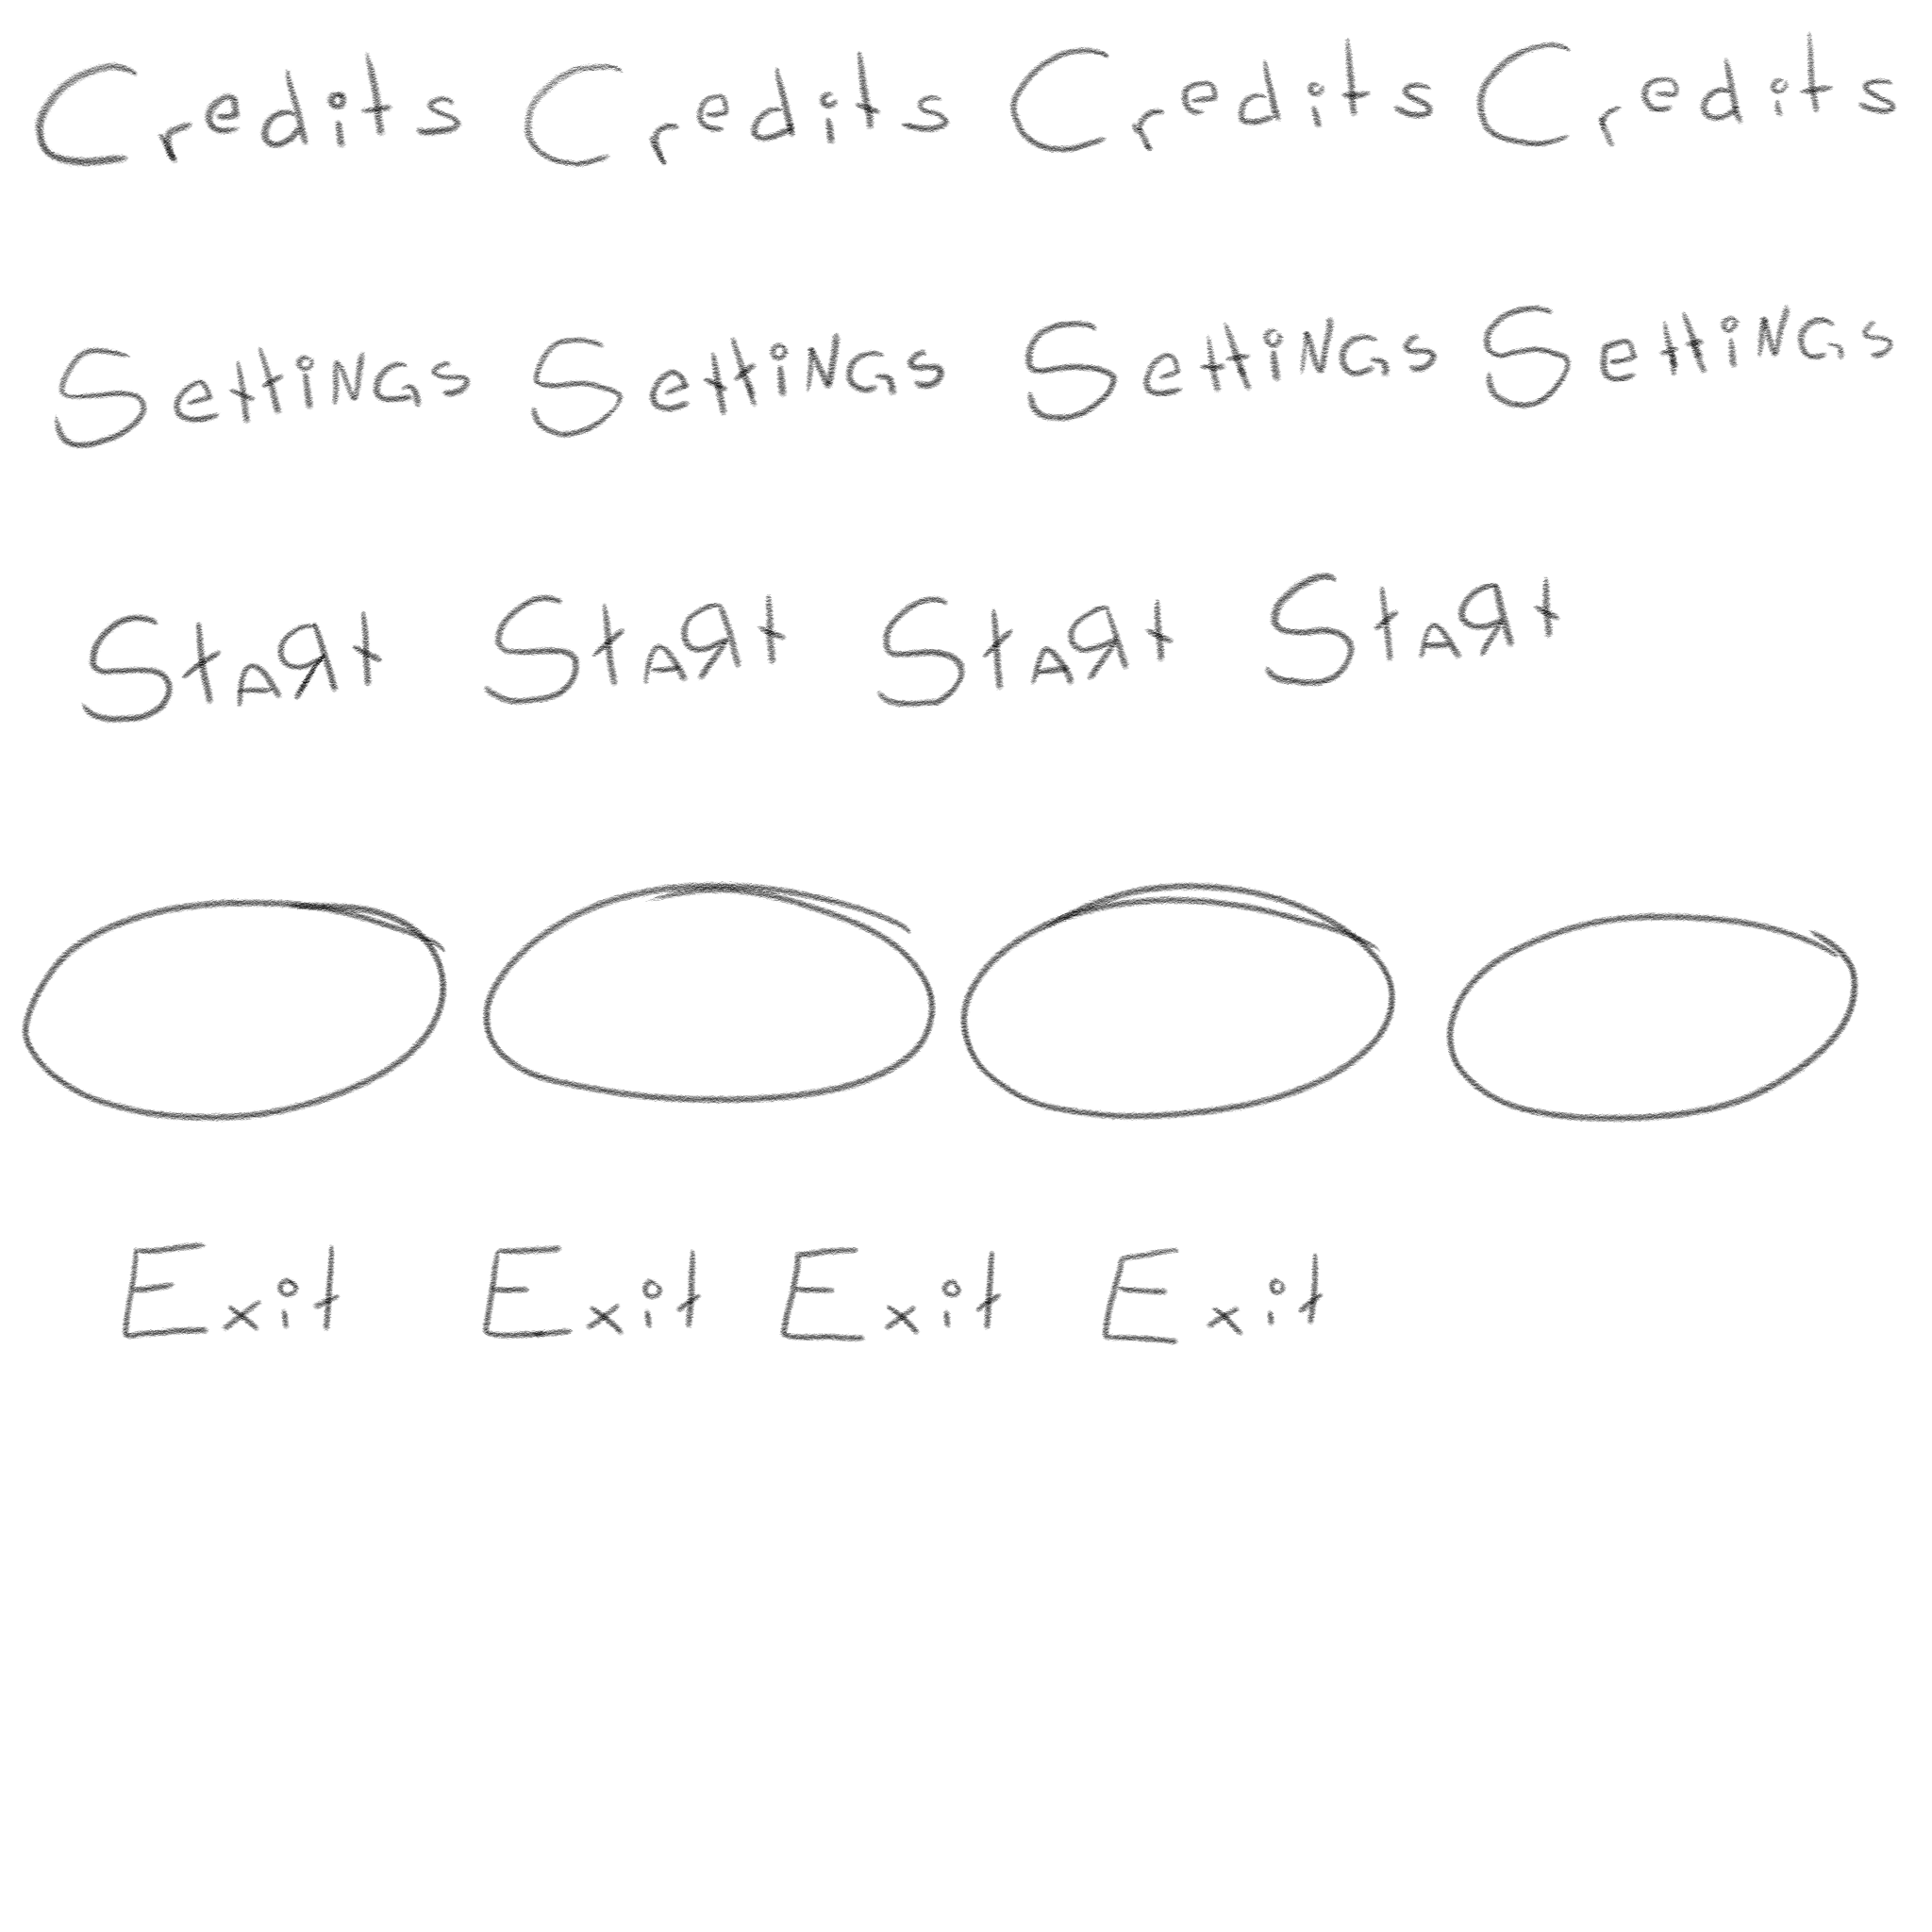 Credits Credits Credits Credits
SettiNGs SettiNGs SettiNGs SettiNGs
StAЯt StAЯt StAЯt StAЯt
Exit Exit Exit Exit